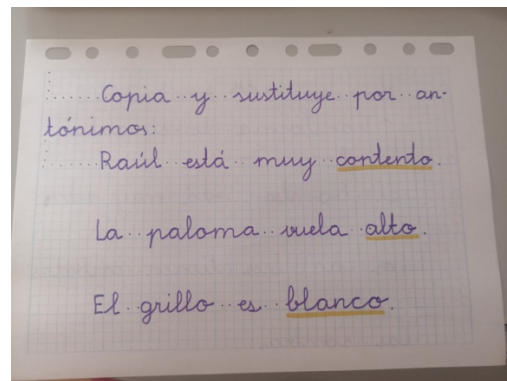 Copia y sustituye por an-
tónimos:
Raúl está muy contento.
La paloma vuela alto.
El grillo es blanco.